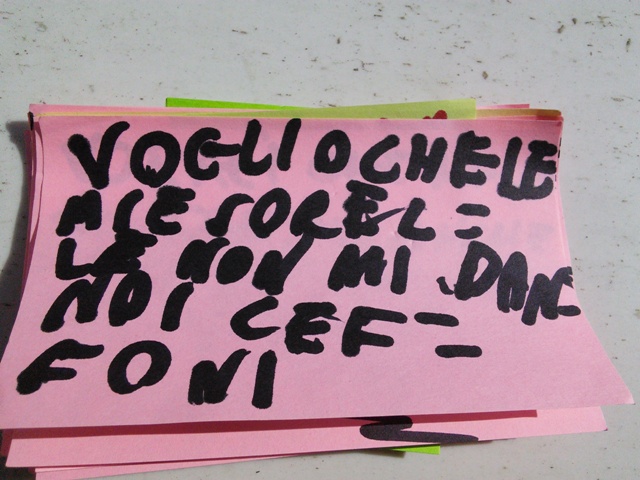 VOGLIO CHE LE
MIE SOREL=
LE NON MI DAN-
NO I CEF=
FONI